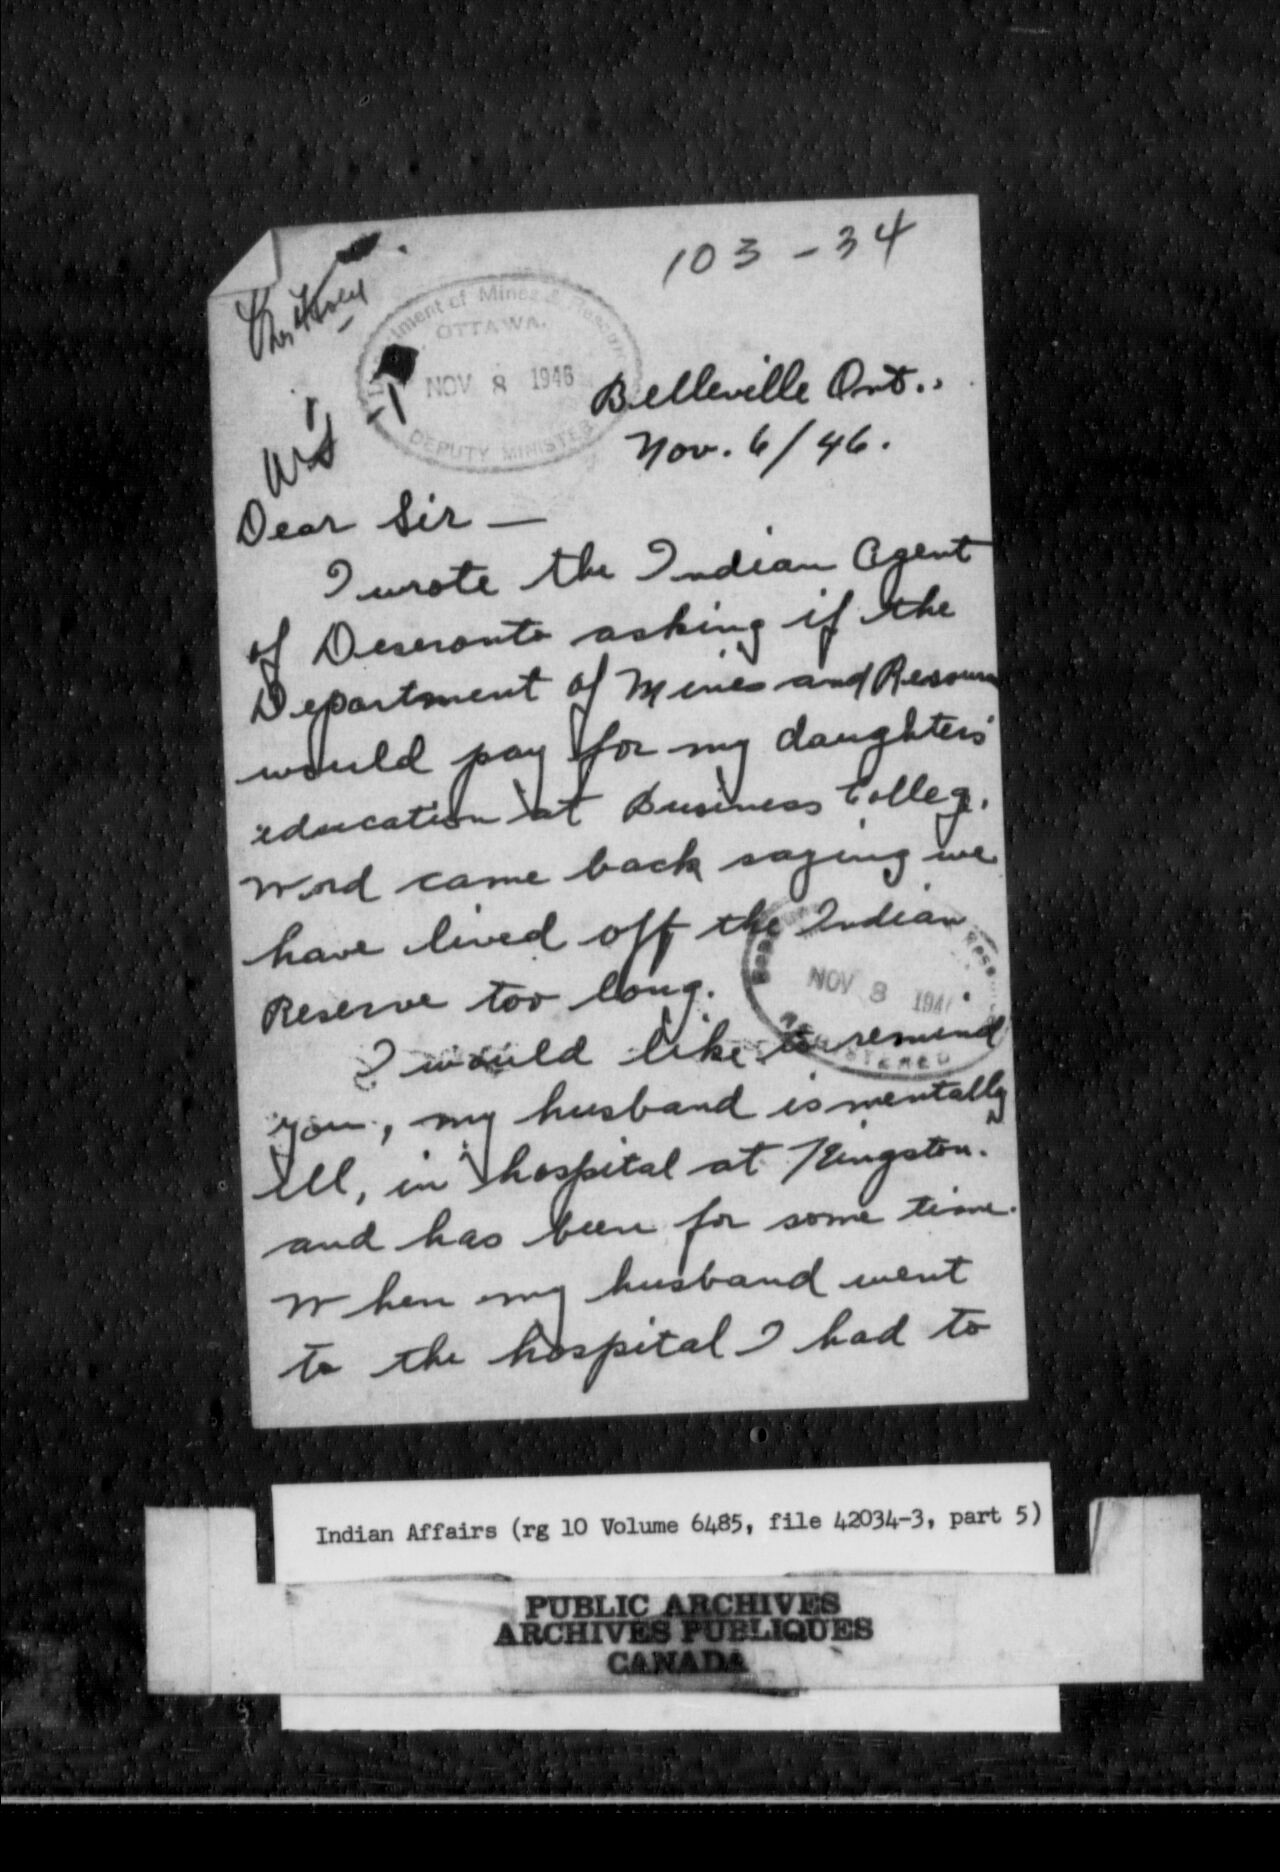 103-34
Department of Mines & Resources
OTTAWA.
NOV 8 1946
DEPUTY MINISTER
Belleville Ont.
Nov. 6/46.
Dear Sir —
I wrote the Indian Agent
of Deseronto asking if the
Department of Mines and Resources
would pay for my daughters'
education at Business Colleg.
Word came back saying we
have lived off the Indian
Reserve too long.
NOV 8 194
REGISTERED
I would like to remind
you, my husband is mentally
ill, in hospital at Kingston.
and has been for some time.
When my husband went
to the hospital I had to
Indian Affairs (rg 10 Volume 6485, file 42034-3, part 5)
PUBLIC ARCHIVES
ARCHIVES PUBLIQUES
CANADA